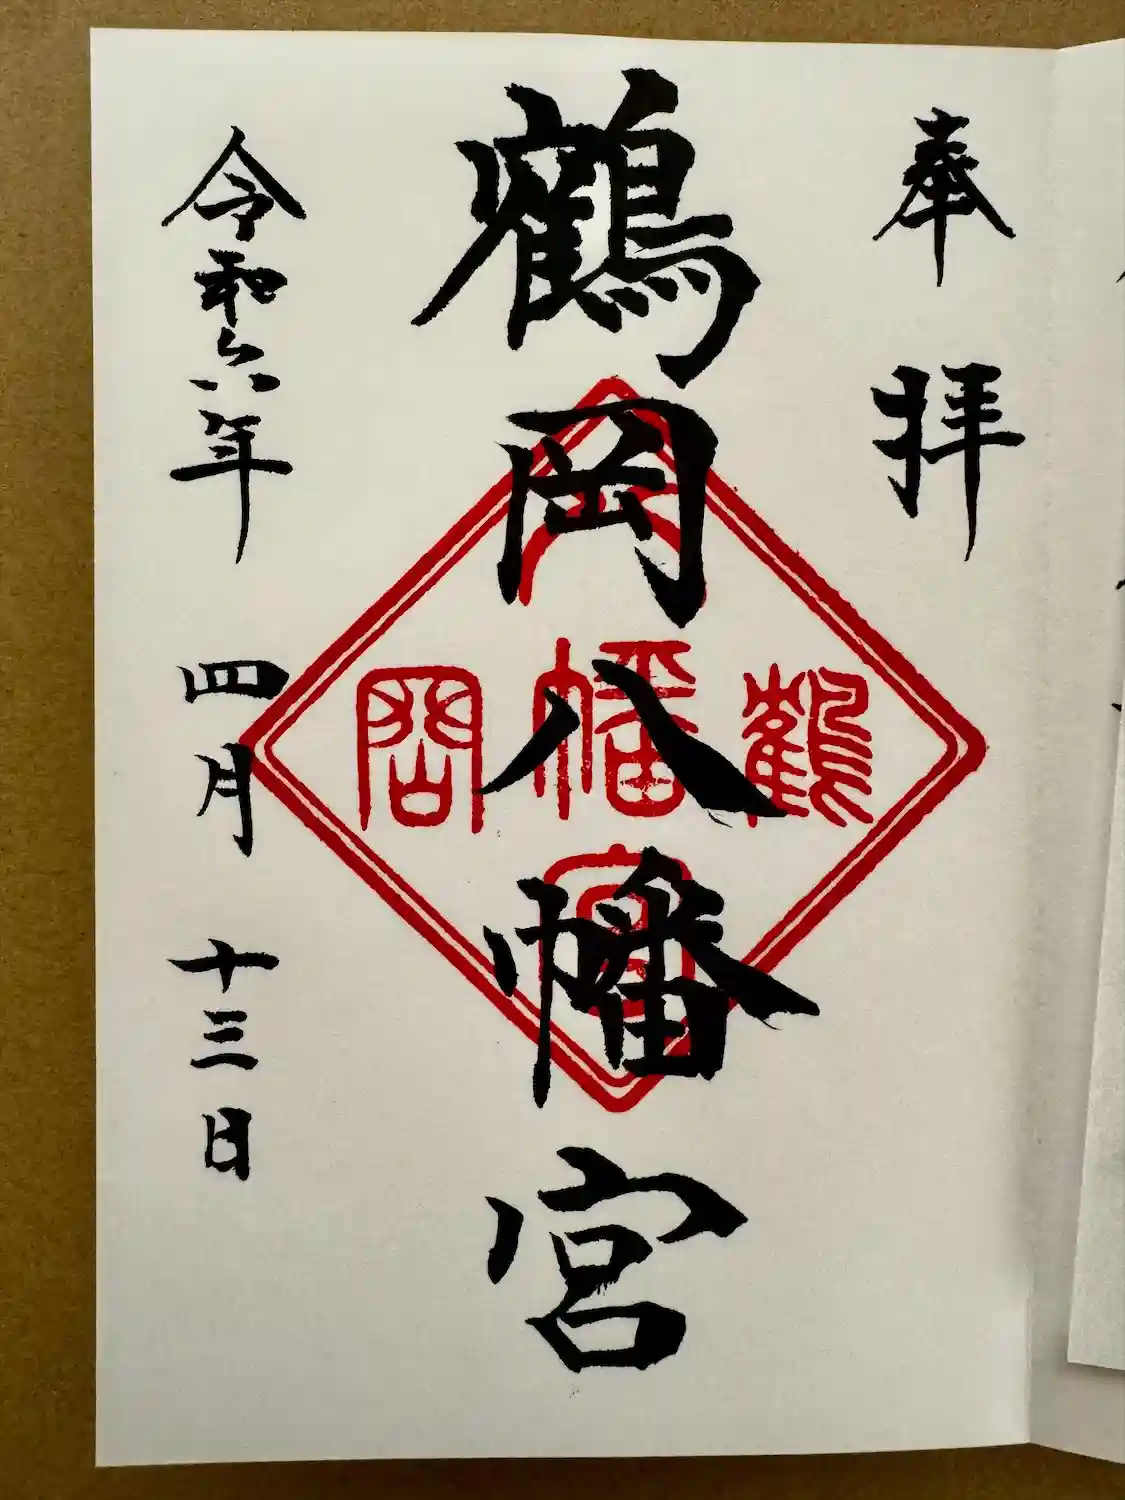 奉拝
鶴岡八幡宮
令和六年四月十三日
鶴
八幡宮
岡